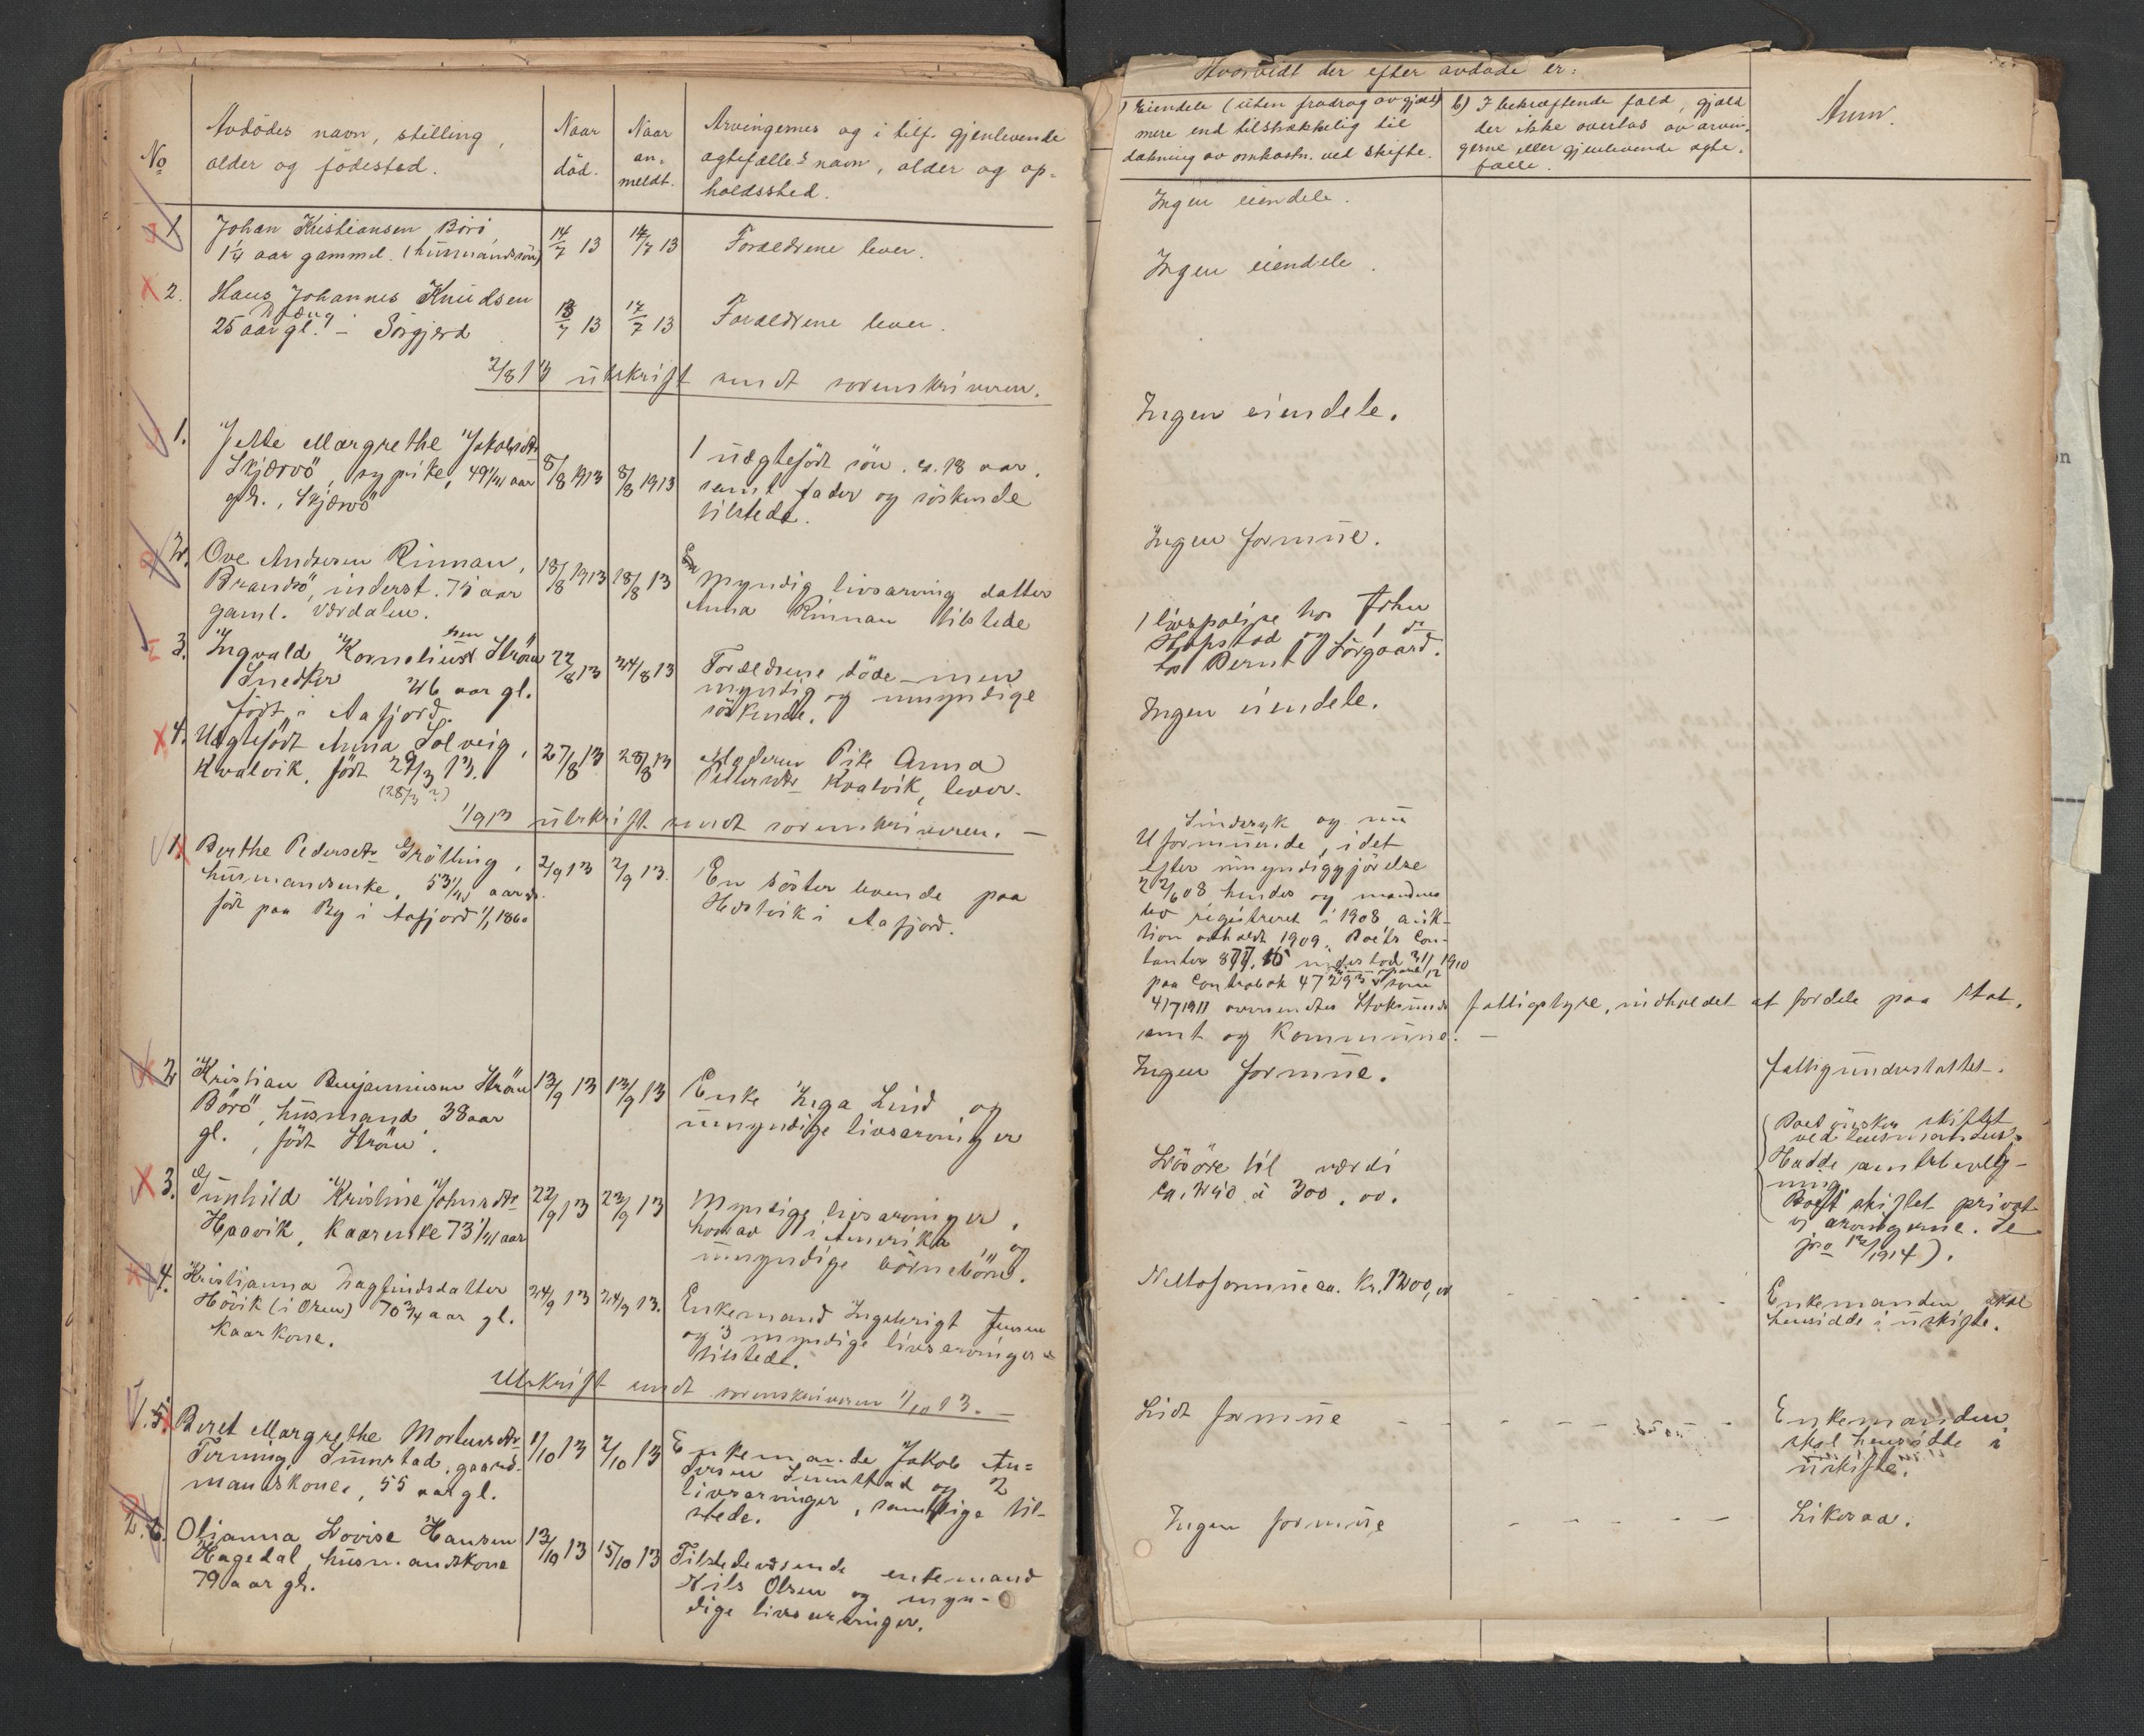 No
Avdödes navn, stilling,
alder og födested.
Naar
död.
Naar
an-
meldt.
Arvingernes og i tilf. gjenlevende
egtefælles navn, alder og op-
holdssted.
1
Johan Kristiansen Börö,
1¼ aar gammel. (husmandssön)
14/7 13
17/7 13
Forældrene lever.
2.
Hans Johannes Knudsen
25 aar gl. - Sörgjerd
13/7 13
17/7 13
Forældrene lever.
2/8 13 utskrift sendt sorenskriveren.
1.
Jette Margrethe Jakobsdtr
Skjærvö, sypike, 49 aar
gl., Skjærvö
8/8 1913
8/8 1913
1 uægtefödt sön, ca. 18 aar,
samt fader og söskende
tilstede.
2.
Ove Andersen Rinnan,
Brandsö, inderst. 75 aar
gaml. Værdalen.
18/8 1913
18/8 13
En myndig livsarving datter
Anna Rinnan tilstede
3.
Ingvald Korneliussen Ström
Snedker 26 aar gl.
födt i Aafjord.
22/8 13
24/8 13
Forældrene döde - men
myndig og umyndige
söskende.
4.
Uægtefödt Anna Solveig,
Kvalvik, födt 29/3 13.
(28/3 ?)
27/8 13
28/8 13
Moderen Pike Anna
Pettersdtr Kvalvik, lever.
1/9 13 utskrift sendt sorenskriveren. -
1.
Berthe Pedersdtr Grötting,
husmandsenke, 53 aar
födt paa By i Aafjord 1/1 1860
2/9 13
2/9 13.
En söster levende paa
Hestvik i Aafjord.
2
Kristian Benjaminsen Ström
Börö, husmand 38 aar
gl., födt Ström.
13/9 13
13/9 13
Enke Inga Lind og
umyndige livsarvinger
3.
Gunhild Kristine Johnsdtr
Haavik, Kaarenke 73 aar
22/9 13
23/9 13
Myndige livsarvinger,
hvorav i Amerika, og
umyndige börneborn.
4.
Kristianna Dagfindsdatter
Hövik (i Oren) 70¾ aar gl.
Kaarkone.
24/9 13
24/9 13.
Enkemand Ingebrigt Jensen
og 3 myndige livsarvinger
tilstede.
Utskrift sendt sorenskriveren 1/10 13. -
1. 5.
Beret Margrethe Mortensdtr
Terning, Sumstad, gaard-
mandskone, 55 aar gl.
1/10 13
2/10 13
Enkemande Jakob An-
dersen Sumstad og 2
livsarvinger, samtlige til-
stede.
2. 6.
Olianna Lovise Hansen
Hagedal, husmandskone
79 aar gl.
13/10 13
15/10 13
Tilstedeværende enkemand
Nils Olsen og myn-
dige livsarvinger.
Hvorvidt der efter avdöde er:
a) Eiendele (uten fradrag av gjæld)
mere end tilstrækkelig til
dækning av omkostn. ved skifte.
b) I bekræftende fald, gjæld
der ikke overtas av arvin-
gerne eller gjenlevende egte-
fælle.
Anm.
Ingen eiendele.
Ingen eiendele.
Ingen eiendele.
Ingen formue.
1 livspolise hos John
Hopstad og 1 do
hos Bernt Sörgaard.
Ingen eiendele.
Sindssyk og nu
Uformuende, idet
efter umyndiggjörelse
22/6 08 hendes og mandens
bo registreret i 1908, auk-
tion avholdt 1909. Boets Con-
tanter 877,16 indestod 31/12 1910
paa Contrabok 472.93, som
4/7 1911 oversendtes Stoksunds fattigstyre, indholdet at fordele paa Stat,
amt og Kommune. -
Ingen formue.
Fattigunderstöttet.
Lösöre til værdi
ca. 250 à 300,00.
Boet önskes skiftet
ved lensmanden.
Hadde amtsbevilg-
ning.
Boet skiftet privat
av arvingerne.
1914).
Nettoformue ca. Kr. 1200,00
Enkemanden skal
hensidde i uskifte.
Lidt formue
Enkemanden
skal hensidde i
uskifte.
Ingen formue
Likesaa.